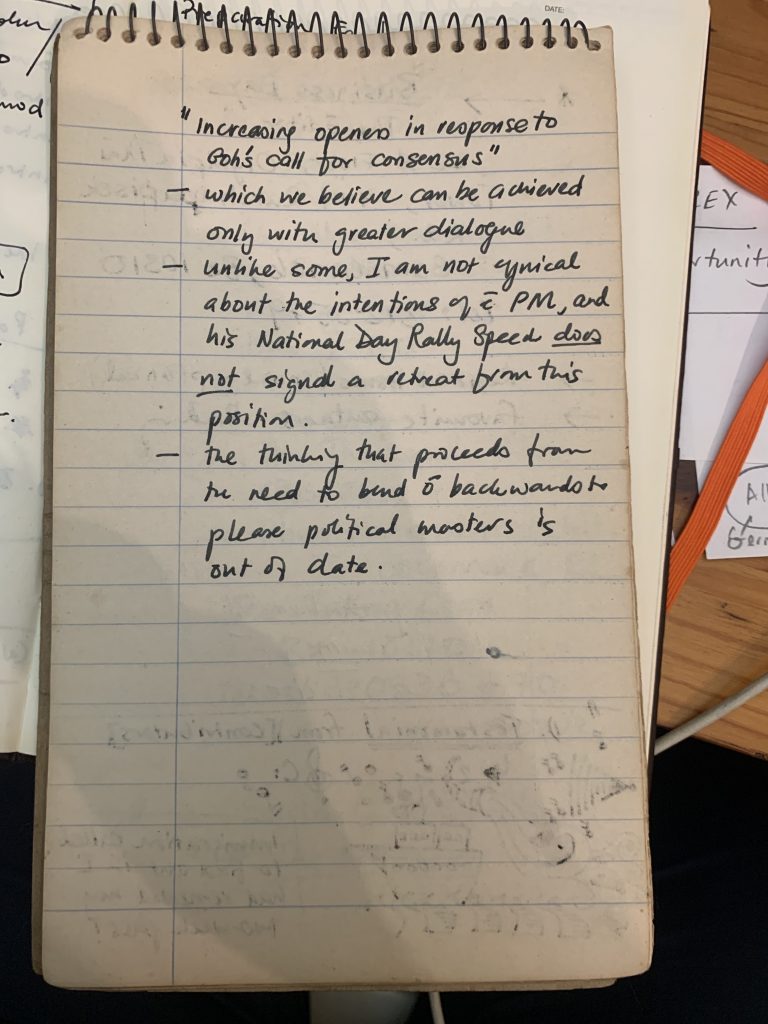 DATE:
"Increasing openess in response to
Goh's call for consensus"
– which we believe can be achieved
only with greater dialogue
– unlike some, I am not cynical
about the intentions of c̄ PM, and
his National Day Rally Speed does
not signal a retreat from this
position.
– the thinking that proceeds from
the need to bend ō backwards to
please political masters is
out of date.
EX
rtuniti
All